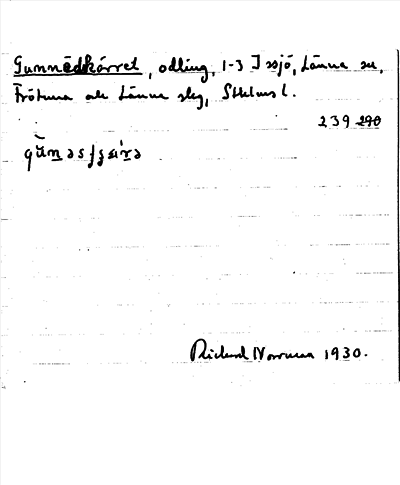 Gunnödkärret, odling, 1-3 Issjö, Länna sn,
Frötuna och Länna skg, Sthlms l.
239 290
Richard Norrman 1930.